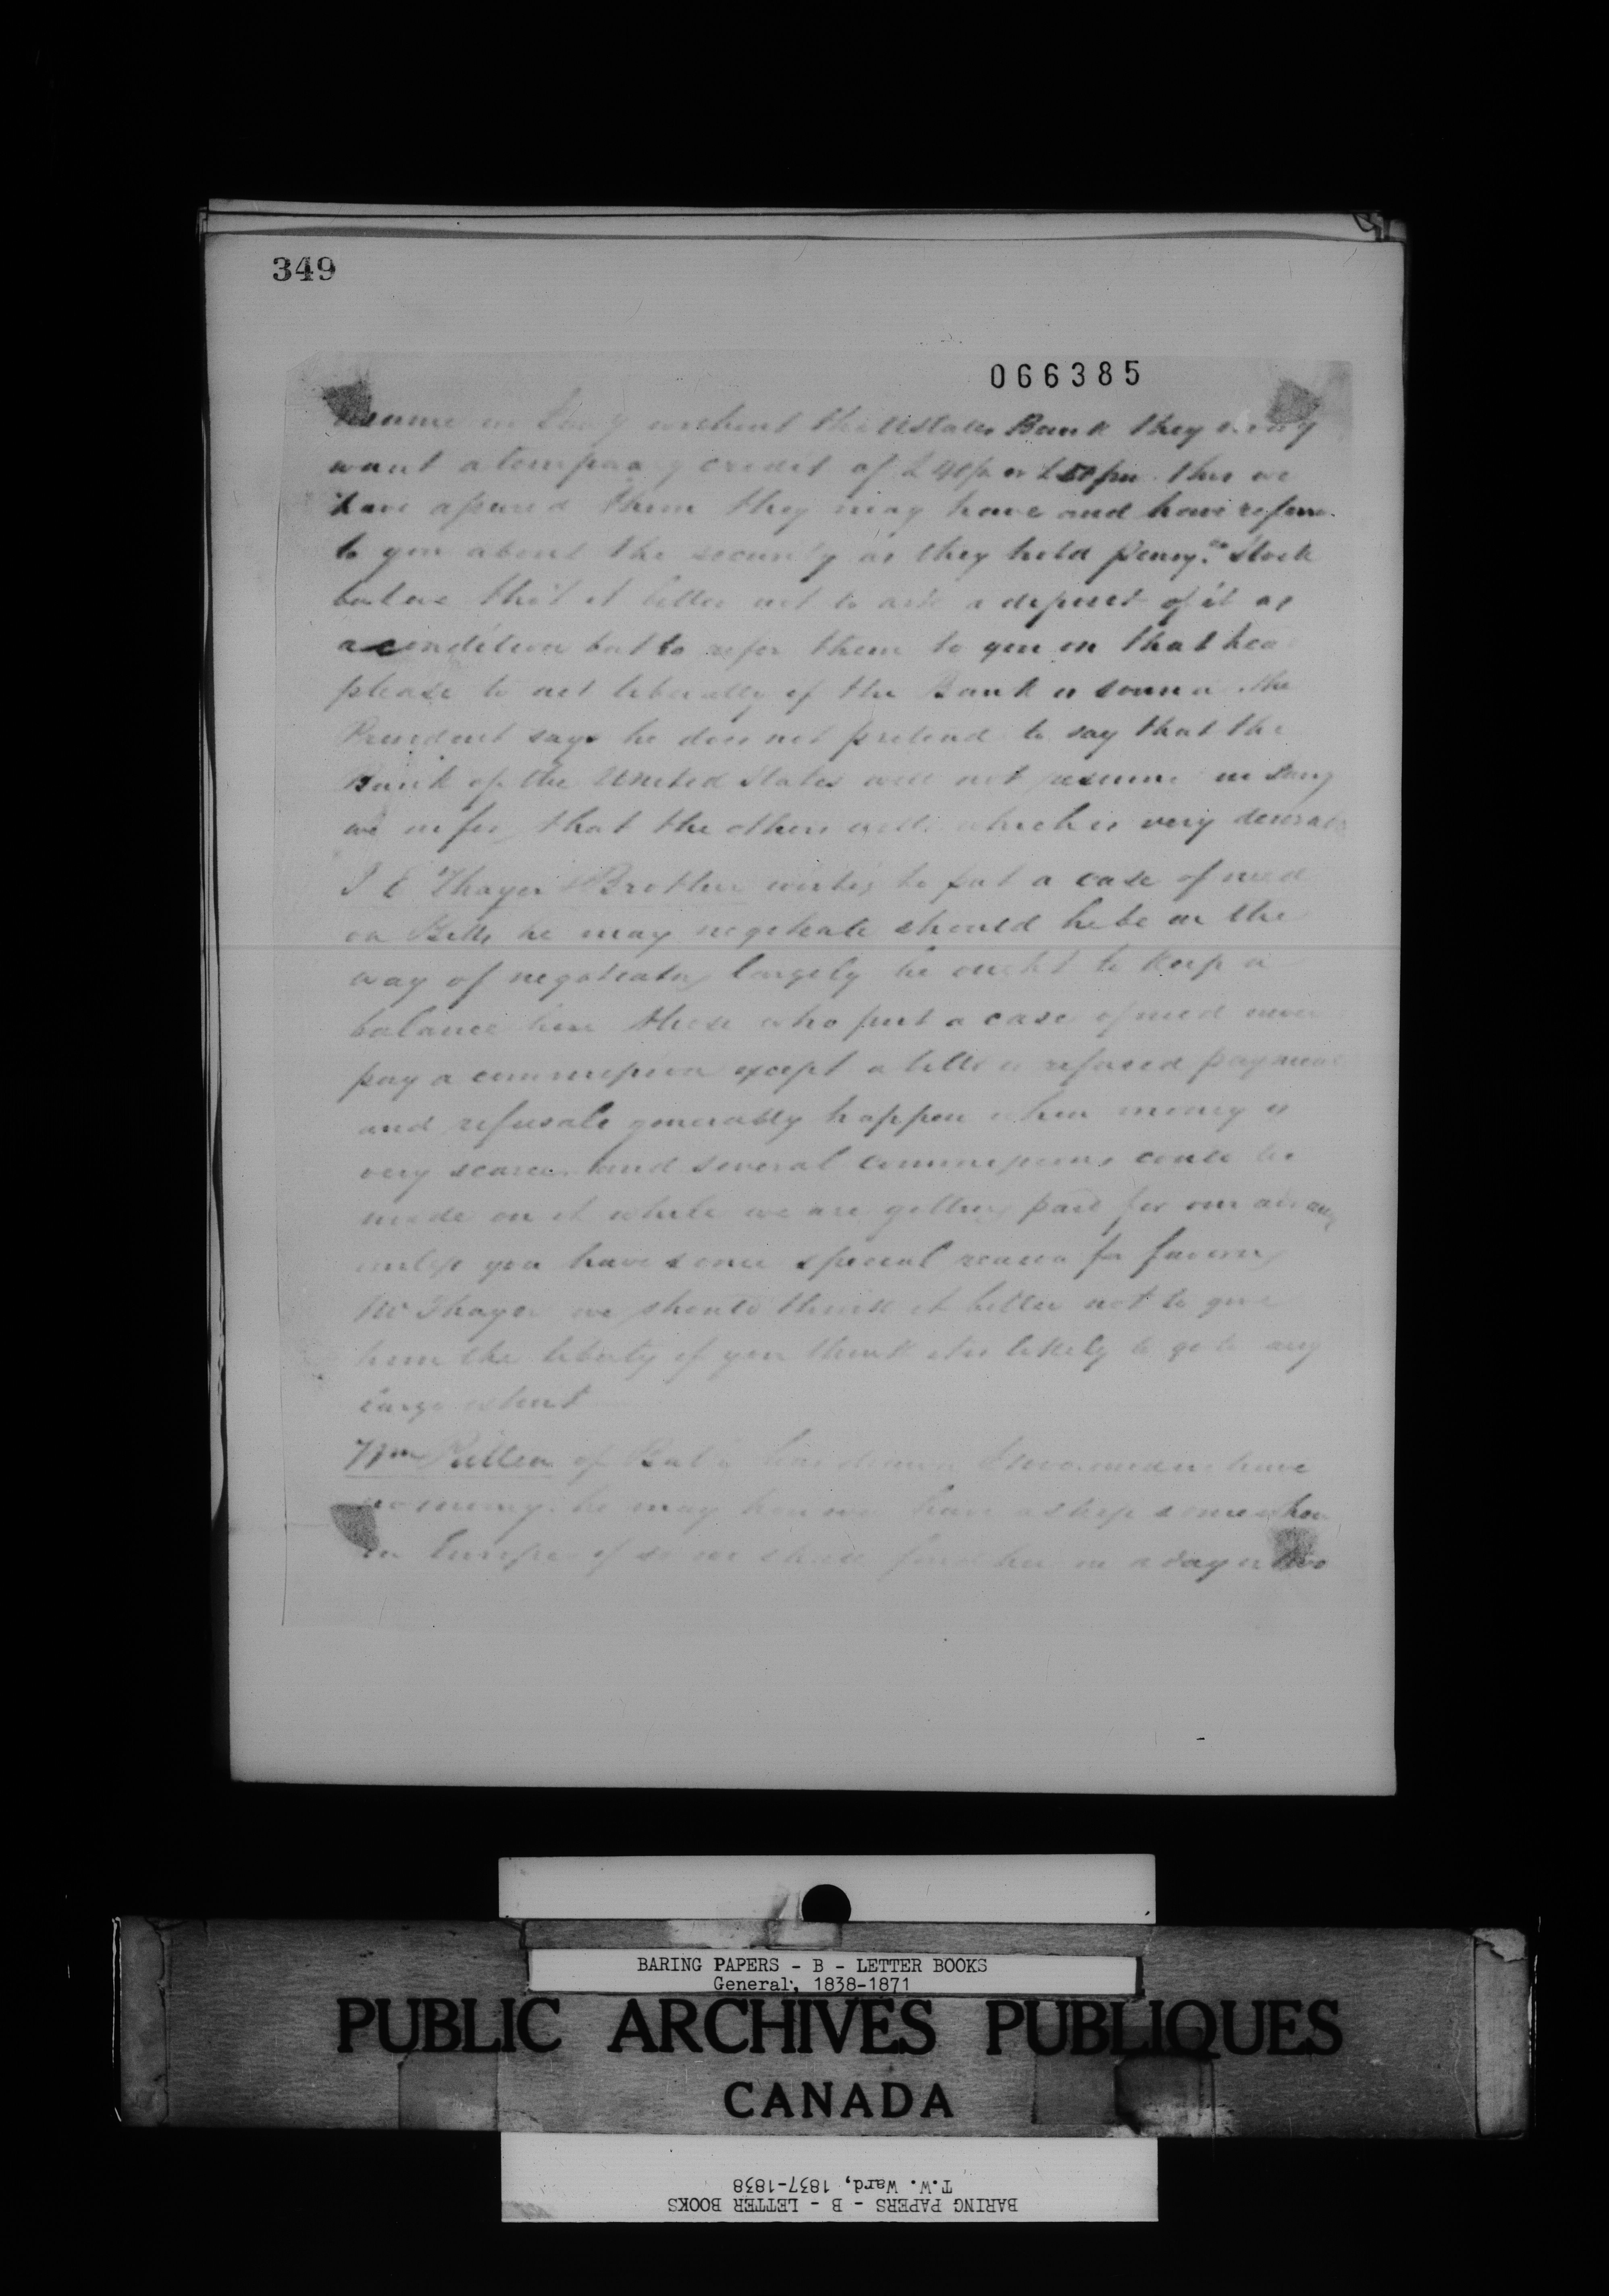 349
066385
resume in without the UStates Bank they may
want a temporary credit of £40/m or £50/m this we
have assured them they may have and have referre
to you about the security as they hold Pensy.va Stock
but we tho't it better not to ask a deposit of it as
a condition but to refer them to you on that hea
please to act liberally if the Bank is sound. the
President says he does not pretend to say that the
Bank of the United States will not resume in Jany
we infer that the others will. which is very desirab
J E Thayer & Brother wishes to put a case of need
on Bills he may negotiate should he be in the
way of negotiating largely he ought to keep a
balance here those who put a case of need never
pay a commission except a bill is refused payment
and refusals generally happen when money is
very scarce and several commissions could be
made on it while we are getting paid for one
unless you have some special reason for favoring
Mr Thayer we should think it better not to give
him the liberty if you think it is likely to go to any
large extent
Wm of have
no money. he may however have a ship somewhere
in Europe if so we shall find her in a day or two
BARING PAPERS - B - LETTER BOOKS
General, 1838-1871
PUBLIC ARCHIVES PUBLIQUES
CANADA
BARING PAPERS - B - LETTER BOOKS
T.W. Ward, 1837-1838